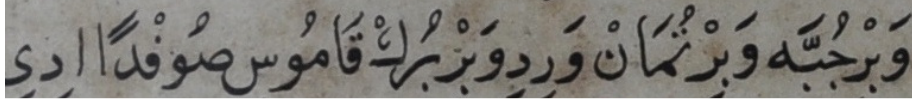 وَبِرْجُبَّه وَبِرْ تُمَانْ وَرِدِ وَبِرْ بُرْكْ قَامُوس صُوفْدًا ادِي